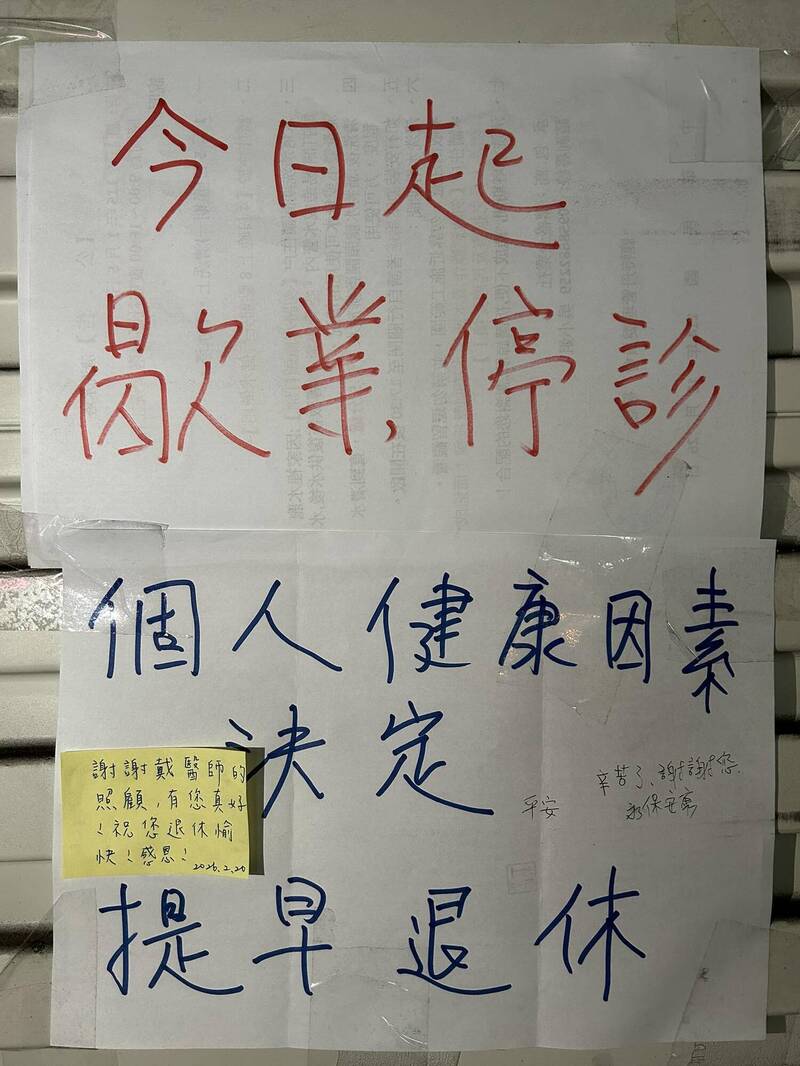 今日起
歇業,停診
個人健康因素
決定
謝謝戴醫師的
照顧,有您真好
!祝您退休愉
快!感恩!
2026.2.20
平安
辛苦了、謝謝您.
永保安康
提早退休